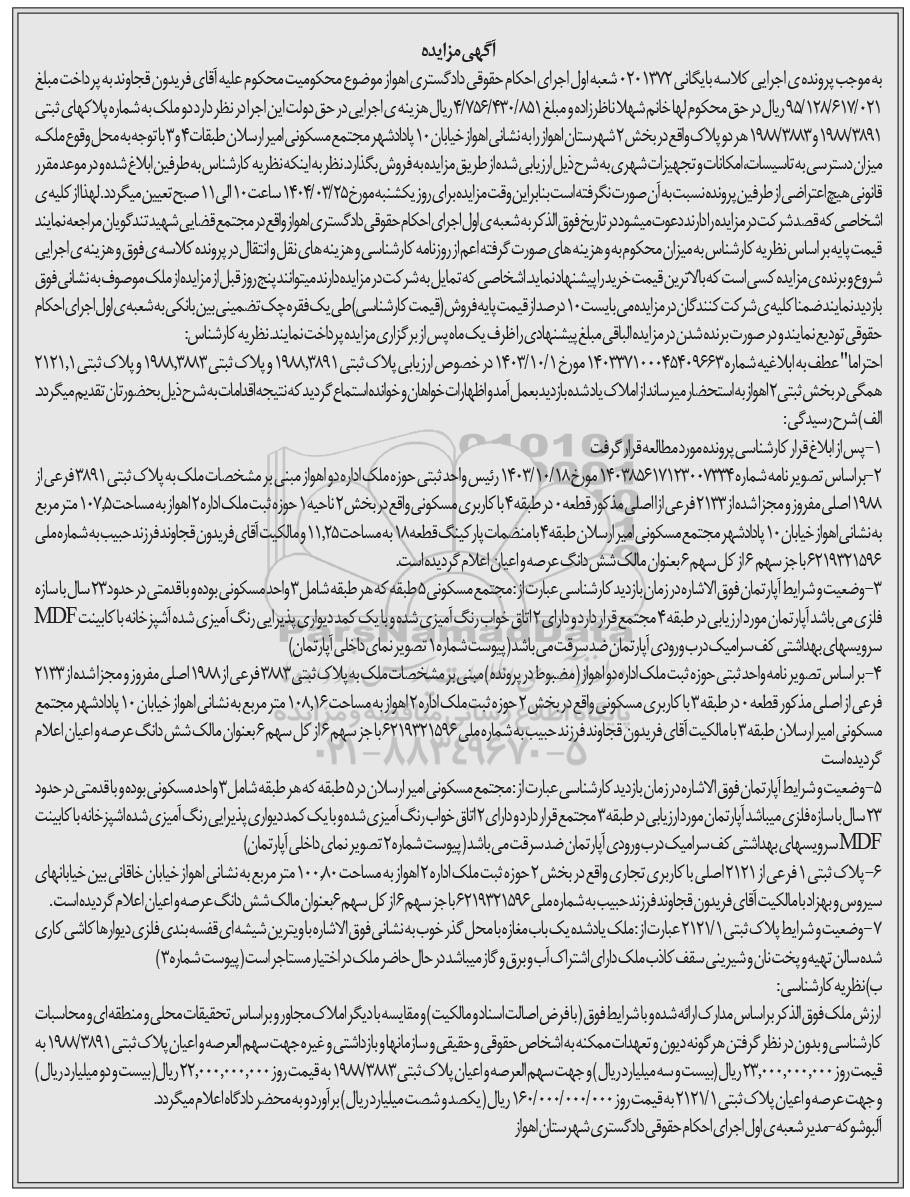 آگهی مزایده
به موجب پرونده ی اجرایی کلاسه بایگانی ۰۲۰۱۳۷۲ شعبه اول اجرای احکام حقوقی دادگستری اهواز موضوع محکومیت محکوم علیه آقای فریدون قجاوند به پرداخت مبلغ
۹۵/۱۲۸/۶۱۷/۰۲۱ ریال در حق محکوم لها خانم شهلا ناظرزاده و مبلغ ۴/۷۵۶/۴۳۰/۸۵۱ ریال هزینه ی اجرایی در حق دولت این اجرا در نظر دارد دو ملک به شماره پلاکهای ثبتی
۱۹۸۸/۳۸۹۱ و ۱۹۸۸/۳۸۸۳ هر دو پلاک واقع در بخش ۲ شهرستان اهواز را به نشانی اهواز خیابان ۱۰ پادادشهر مجتمع مسکونی امیر ارسلان طبقات ۴ و ۳ با توجه به محل وقوع ملک،
میزان دسترسی به تاسیسات، امکانات و تجهیزات شهری به شرح ذیل ارزیابی شده از طریق مزایده به فروش بگذارد. نظر به اینکه نظریه کارشناس به طرفین ابلاغ شده و در موعد مقرر
قانونی هیچ اعتراضی از طرفین پرونده نسبت به آن صورت نگرفته است بنابراین وقت مزایده برای روز یکشنبه مورخ ۱۴۰۴/۰۳/۲۵ ساعت ۱۰ الی ۱۱ صبح تعیین میگردد. لهذا از کلیه ی
اشخاصی که قصد شرکت در مزایده را دارند دعوت میشود در تاریخ فوق الذکر به شعبه ی اول اجرای احکام حقوقی دادگستری اهواز واقع در مجتمع قضایی شهید تندگویان مراجعه نمایند
قیمت پایه بر اساس نظریه کارشناس به میزان محکوم به و هزینه های صورت گرفته اعم از روزنامه کارشناسی و هزینه های نقل و انتقال در پرونده کلاسه ی فوق و هزینه ی اجرایی
شروع و برنده ی مزایده کسی است که بالاترین قیمت خرید را پیشنهاد نماید اشخاصی که تمایل به شرکت در مزایده دارند میتوانند پنج روز قبل از مزایده از ملک موصوف به نشانی فوق
بازدید نمایند ضمنا کلیه ی شرکت کنندگان در مزایده می بایست ۱۰ درصد از قیمت پایه فروش (قیمت کارشناسی) طی یک فقره چک تضمینی بین بانکی به شعبه ی اول اجرای احکام
حقوقی تودیع نمایند و در صورت برنده شدن در مزایده الباقی مبلغ پیشنهادی را ظرف یک ماه پس از برگزاری مزایده پرداخت نمایند. نظریه کارشناس:
احتراما" عطف به ابلاغیه شماره ۱۴۰۳۳۷۱۰۰۰۴۵۴۰۹۶۶۳ مورخ ۱۴۰۳/۱۰/۱ در خصوص ارزیابی پلاک ثبتی ۱۹۸۸,۳۸۹۱ و پلاک ثبتی ۱۹۸۸,۳۸۸۳ و پلاک ثبتی ۲۱۲۱,۱
همگی در بخش ثبتی ۲ اهواز به استحضار میرساند از املاک یاد شده بازدید بعمل آمد و اظهارات خواهان و خوانده استماع گردید که نتیجه اقدامات به شرح ذیل بحضورتان تقدیم میگردد.
الف) شرح رسیدگی:
۱- پس از ابلاغ قرار کارشناسی پرونده مورد مطالعه قرار گرفت
۲- بر اساس تصویر نامه شماره ۱۴۰۳۸۵۶۱۷۱۲۳۰۰۷۳۳۴ مورخ ۱۴۰۳/۱۰/۱۸ رئیس واحد ثبتی حوزه ملک اداره دو اهواز مبنی بر مشخصات ملک به پلاک ثبتی ۳۸۹۱ فرعی از
۱۹۸۸ اصلی مفروز و مجزا شده از ۲۱۳۳ فرعی از اصلی مذکور قطعه ۰ در طبقه ۴ با کاربری مسکونی واقع در بخش ۲ ناحیه ۱ حوزه ثبت ملک اداره ۲ اهواز به مساحت ۱۰۷,۵ متر مربع
به نشانی اهواز خیابان ۱۰ پادادشهر مجتمع مسکونی امیر ارسلان طبقه ۴ با منضمات پارکینگ قطعه ۱۸ به مساحت ۱۱,۲۵ و مالکیت آقای فریدون قجاوند فرزند حبیب به شماره ملی
۶۲۱۹۳۲۱۵۹۶ با جز سهم ۶ از کل سهم ۶ بعنوان مالک شش دانگ عرصه و اعیان اعلام گردیده است.
۳- وضعیت و شرایط آپارتمان فوق الاشاره در زمان بازدید کارشناسی عبارت از: مجتمع مسکونی ۵ طبقه که هر طبقه شامل ۳ واحد مسکونی بوده و با قدمتی در حدود ۲۳ سال با سازه
فلزی می باشد آپارتمان مورد ارزیابی در طبقه ۴ مجتمع قرار دارد و دارای ۲ اتاق خواب رنگ آمیزی شده و با یک کمد دیواری پذیرایی رنگ آمیزی شده آشپزخانه با کابینت MDF
سرویسهای بهداشتی کف سرامیک درب ورودی آپارتمان ضد سرقت می باشد (پیوست شماره ۱ تصویر نمای داخلی آپارتمان)
۴- بر اساس تصویر نامه واحد ثبتی حوزه ثبت ملک اداره دو اهواز (مضبوط در پرونده) مبنی بر مشخصات ملک به پلاک ثبتی ۳۸۸۳ فرعی از ۱۹۸۸ اصلی مفروز و مجزا شده از ۲۱۳۳
فرعی از اصلی مذکور قطعه ۰ در طبقه ۳ با کاربری مسکونی واقع در بخش ۲ حوزه ثبت ملک اداره ۲ اهواز به مساحت ۱۰۸,۱۶ متر مربع به نشانی اهواز خیابان ۱۰ پادادشهر مجتمع
مسکونی امیر ارسلان طبقه ۳ با مالکیت آقای فریدون قجاوند فرزند حبیب به شماره ملی ۶۲۱۹۳۲۱۵۹۶ با جز سهم ۶ از کل سهم ۶ بعنوان مالک شش دانگ عرصه و اعیان اعلام
گردیده است
۵- وضعیت و شرایط آپارتمان فوق الاشاره در زمان بازدید کارشناسی عبارت از: مجتمع مسکونی امیر ارسلان در ۵ طبقه که هر طبقه شامل ۳ واحد مسکونی بوده و با قدمتی در حدود
۲۳ سال با سازه فلزی میباشد آپارتمان مورد ارزیابی در طبقه ۳ مجتمع قرار دارد و دارای ۲ اتاق خواب رنگ آمیزی شده و با یک کمد دیواری پذیرایی رنگ آمیزی شده اشپزخانه با کابینت
MDF سرویسهای بهداشتی کف سرامیک درب ورودی آپارتمان ضد سرقت می باشد (پیوست شماره ۲ تصویر نمای داخلی آپارتمان)
۶- پلاک ثبتی ۱ فرعی از ۲۱۲۱ اصلی با کاربری تجاری واقع در بخش ۲ حوزه ثبت ملک اداره ۲ اهواز به مساحت ۱۰۰,۸۰ متر مربع به نشانی اهواز خیابان خاقانی بین خیابانهای
سیروس و بهزاد با مالکیت آقای فریدون قجاوند فرزند حبیب به شماره ملی ۶۲۱۹۳۲۱۵۹۶ با جز سهم ۶ از کل سهم ۶ بعنوان مالک شش دانگ عرصه و اعیان اعلام گردیده است.
۷- وضعیت و شرایط پلاک ثبتی ۲۱۲۱/۱ عبارت از: ملک یاد شده یک باب مغازه با محل گذر خوب به نشانی فوق الاشاره با ویترین شیشه ای قفسه بندی فلزی دیوارها کاشی کاری
شده سالن تهیه و پخت نان و شیرینی سقف کاذب ملک دارای اشتراک آب و برق و گاز میباشد در حال حاضر ملک در اختیار مستاجر است (پیوست شماره ۳)
ب) نظریه کارشناسی:
ارزش ملک فوق الذکر بر اساس مدارک ارائه شده و با شرایط فوق (با فرض اصالت اسناد و مالکیت) و مقایسه با دیگر املاک مجاور و بر اساس تحقیقات محلی و منطقه ای و محاسبات
کارشناسی و بدون در نظر گرفتن هر گونه دیون و تعهدات ممکنه به اشخاص حقوقی و حقیقی و سازمانها و بازداشتی و غیره جهت سهم العرصه و اعیان پلاک ثبتی ۱۹۸۸/۳۸۹۱ به
قیمت روز ۲۳,۰۰۰,۰۰۰,۰۰۰ ریال (بیست و سه میلیارد ریال) و جهت سهم العرصه و اعیان پلاک ثبتی ۱۹۸۸/۳۸۸۳ به قیمت روز ۲۲,۰۰۰,۰۰۰,۰۰۰ ریال (بیست و دو میلیارد ریال)
و جهت عرصه و اعیان پلاک ثبتی ۲۱۲۱/۱ به قیمت روز ۱۶۰/۰۰۰/۰۰۰/۰۰۰ ریال (یکصد و شصت میلیارد ریال) برآورد و به محضر دادگاه اعلام میگردد.
آلبوشوکه- مدیر شعبه ی اول اجرای احکام حقوقی دادگستری شهرستان اهواز
ParsNamadData
۰۲۱-۸۸۳۴۹۶۷۰-۵